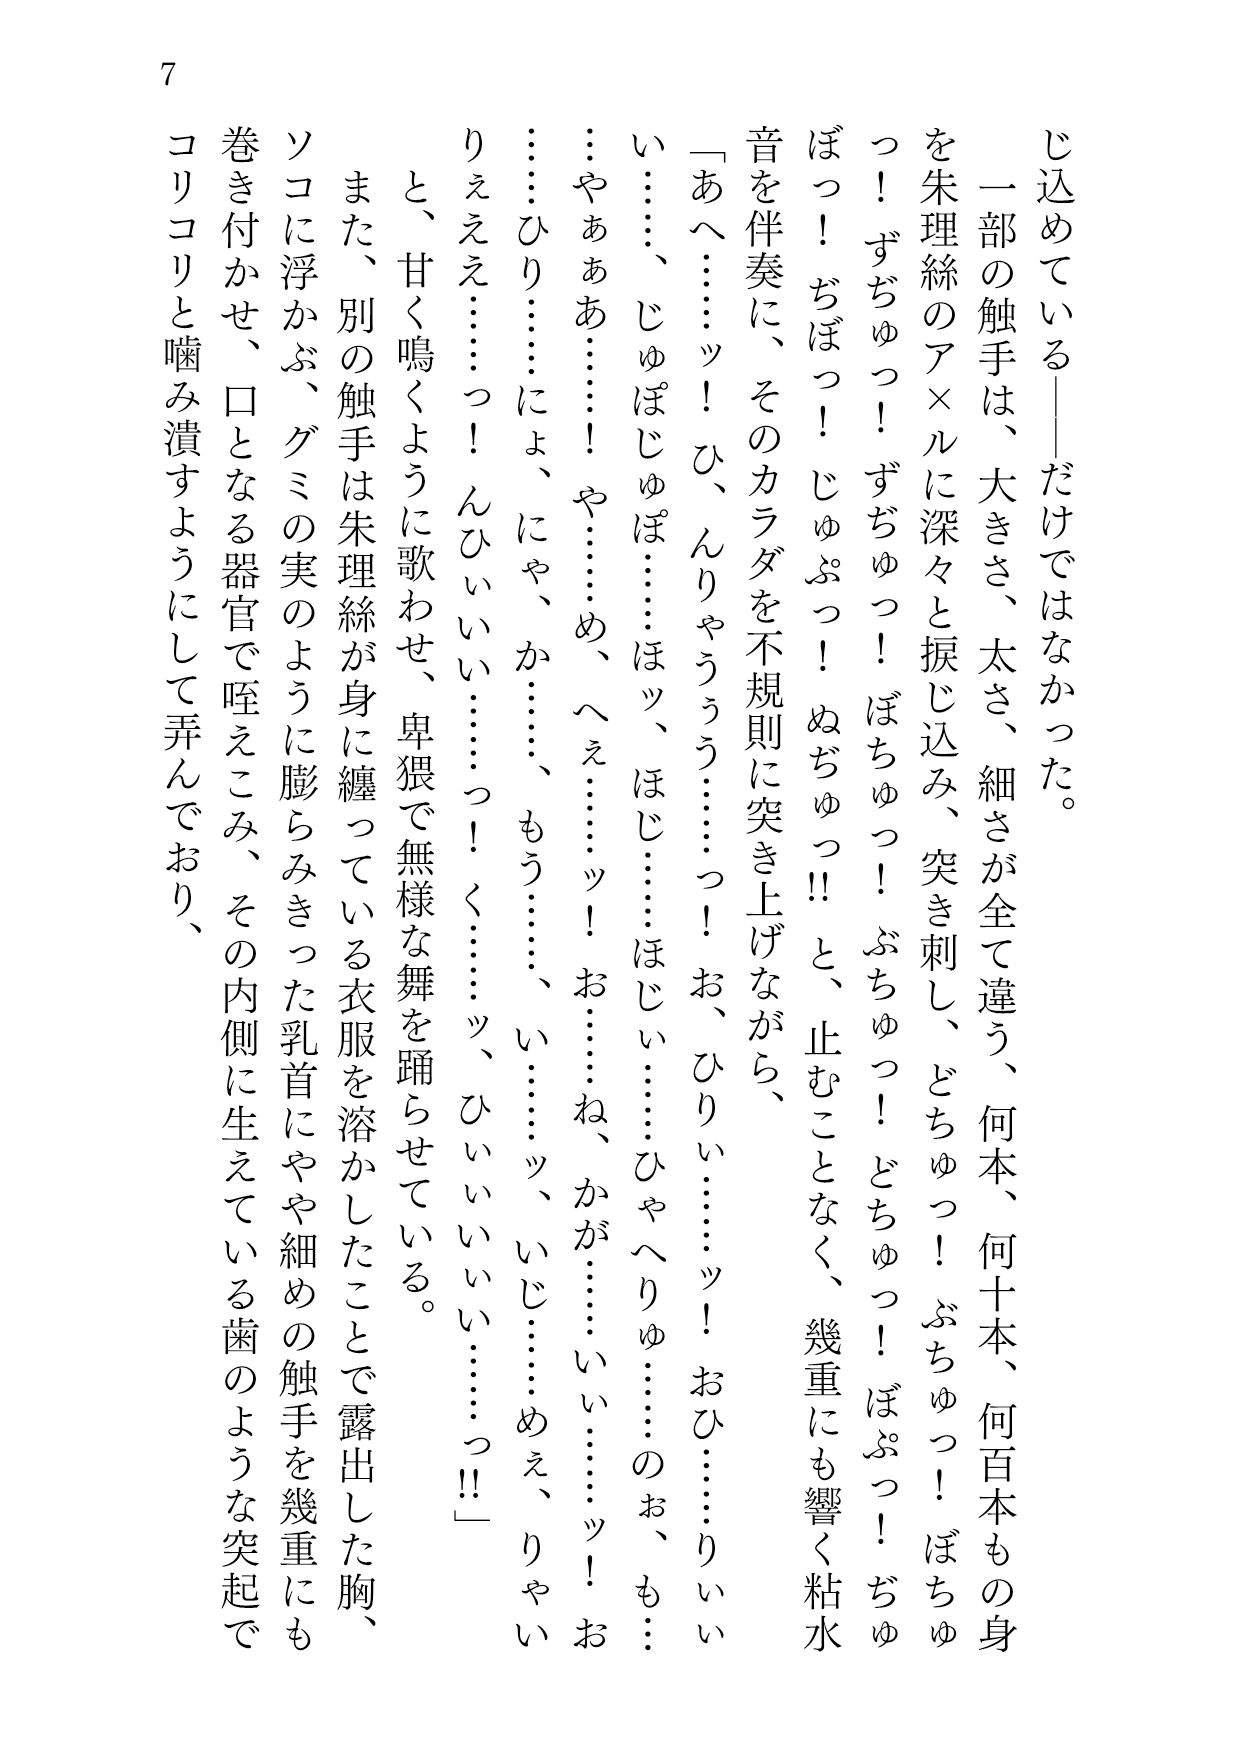 7
じ込めている――だけではなかった。
　一部の触手は、大きさ、太さ、細さが全て違う、何本、何十本、何百本もの身
を朱理絲のア×ルに深々と捩じ込み、突き刺し、どちゅっ！ ぶちゅっ！ ぼちゅ
っ！ ずぢゅっ！ ずぢゅっ！ ぼちゅっ！ ぶちゅっ！ どちゅっ！ ぼぷっ！ ぢゅ
ぼっ！ ぢぼっ！ じゅぷっ！ ぬぢゅっ!! と、止むことなく、幾重にも響く粘水
音を伴奏に、そのカラダを不規則に突き上げながら、
「あへ……ッ！ ひ、んりゃうぅう……っ！ お、ひりぃ……ッ！ おひ……りぃぃ
い……、じゅぽじゅぽ……ほッ、ほじ……ほじぃ……ひゃへりゅ……のぉ、も…
…やぁぁあ……！ や……め、へぇ……ッ！ お……ね、かが……いぃ……ッ！ お
……ひり……にょ、にゃ、か……、もう……、い……ッ、いじ……めぇ、りゃい
りぇええ……っ！ んひぃいい……っ！ く……ッ、ひぃぃいぃい……っ!!」
　と、甘く鳴くように歌わせ、卑猥で無様な舞を踊らせている。
　また、別の触手は朱理絲が身に纏っている衣服を溶かしたことで露出した胸、
ソコに浮かぶ、グミの実のように膨らみきった乳首にやや細めの触手を幾重にも
巻き付かせ、口となる器官で咥えこみ、その内側に生えている歯のような突起で
コリコリと噛み潰すようにして弄んでおり、